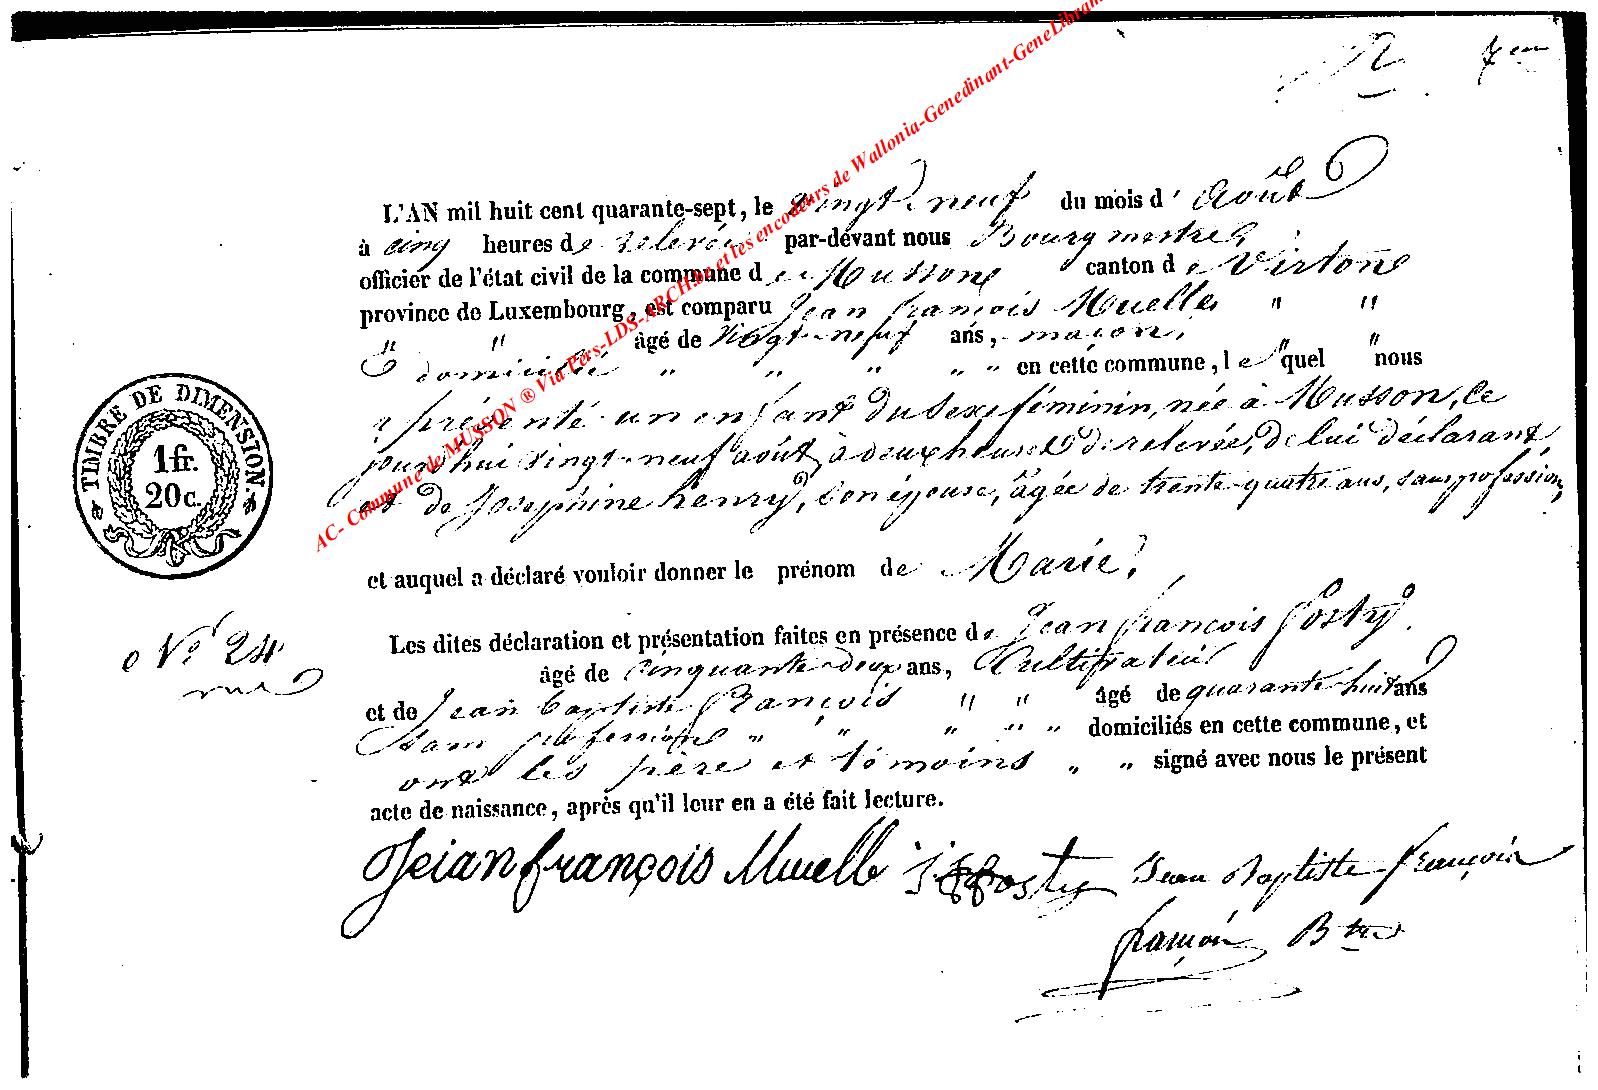 7em
AC- Commune de MUSSON ® Via Pers-LDS-ARCH.be et les encodeurs de Wallonia-Genedinant-GeneLibram
L'AN mil huit cent quarante-sept, le Vingt-neuf du mois d' août
à cinq heures de relevée par-devant nous Bourgmestre,
officier de l'état civil de la commune de Musson canton de Virton
province de Luxembourg, est comparu Jean françois Muelle " "
" " âgé de Vingt-neuf ans, maçon,
domicilié " " " " " en cette commune, le "quel "nous
a présenté un enfant du sexe féminin, née à Musson, ce
jourd'hui vingt-neuf août, à deux heures de relevée, de lui déclarant
et de Josephine henry, son épouse, âgée de trente-quatre ans, sans profession,
et auquel a déclaré vouloir donner le prénom de Marie.
TIMBRE DE DIMENSION.
1 fr.
20 c.
No 24
Les dites déclaration et présentation faites en présence de Jean françois Gosty
âgé de cinquante-deux ans, Cultivateur
et de Jean baptiste françois " " âgé de quarante-huit ans
sans profession " " " " " domiciliés en cette commune, et
ont les père et témoins " " signé avec nous le présent
acte de naissance, après qu'il leur en a été fait lecture.
Jeian françois Muelle Jean Baptiste françois